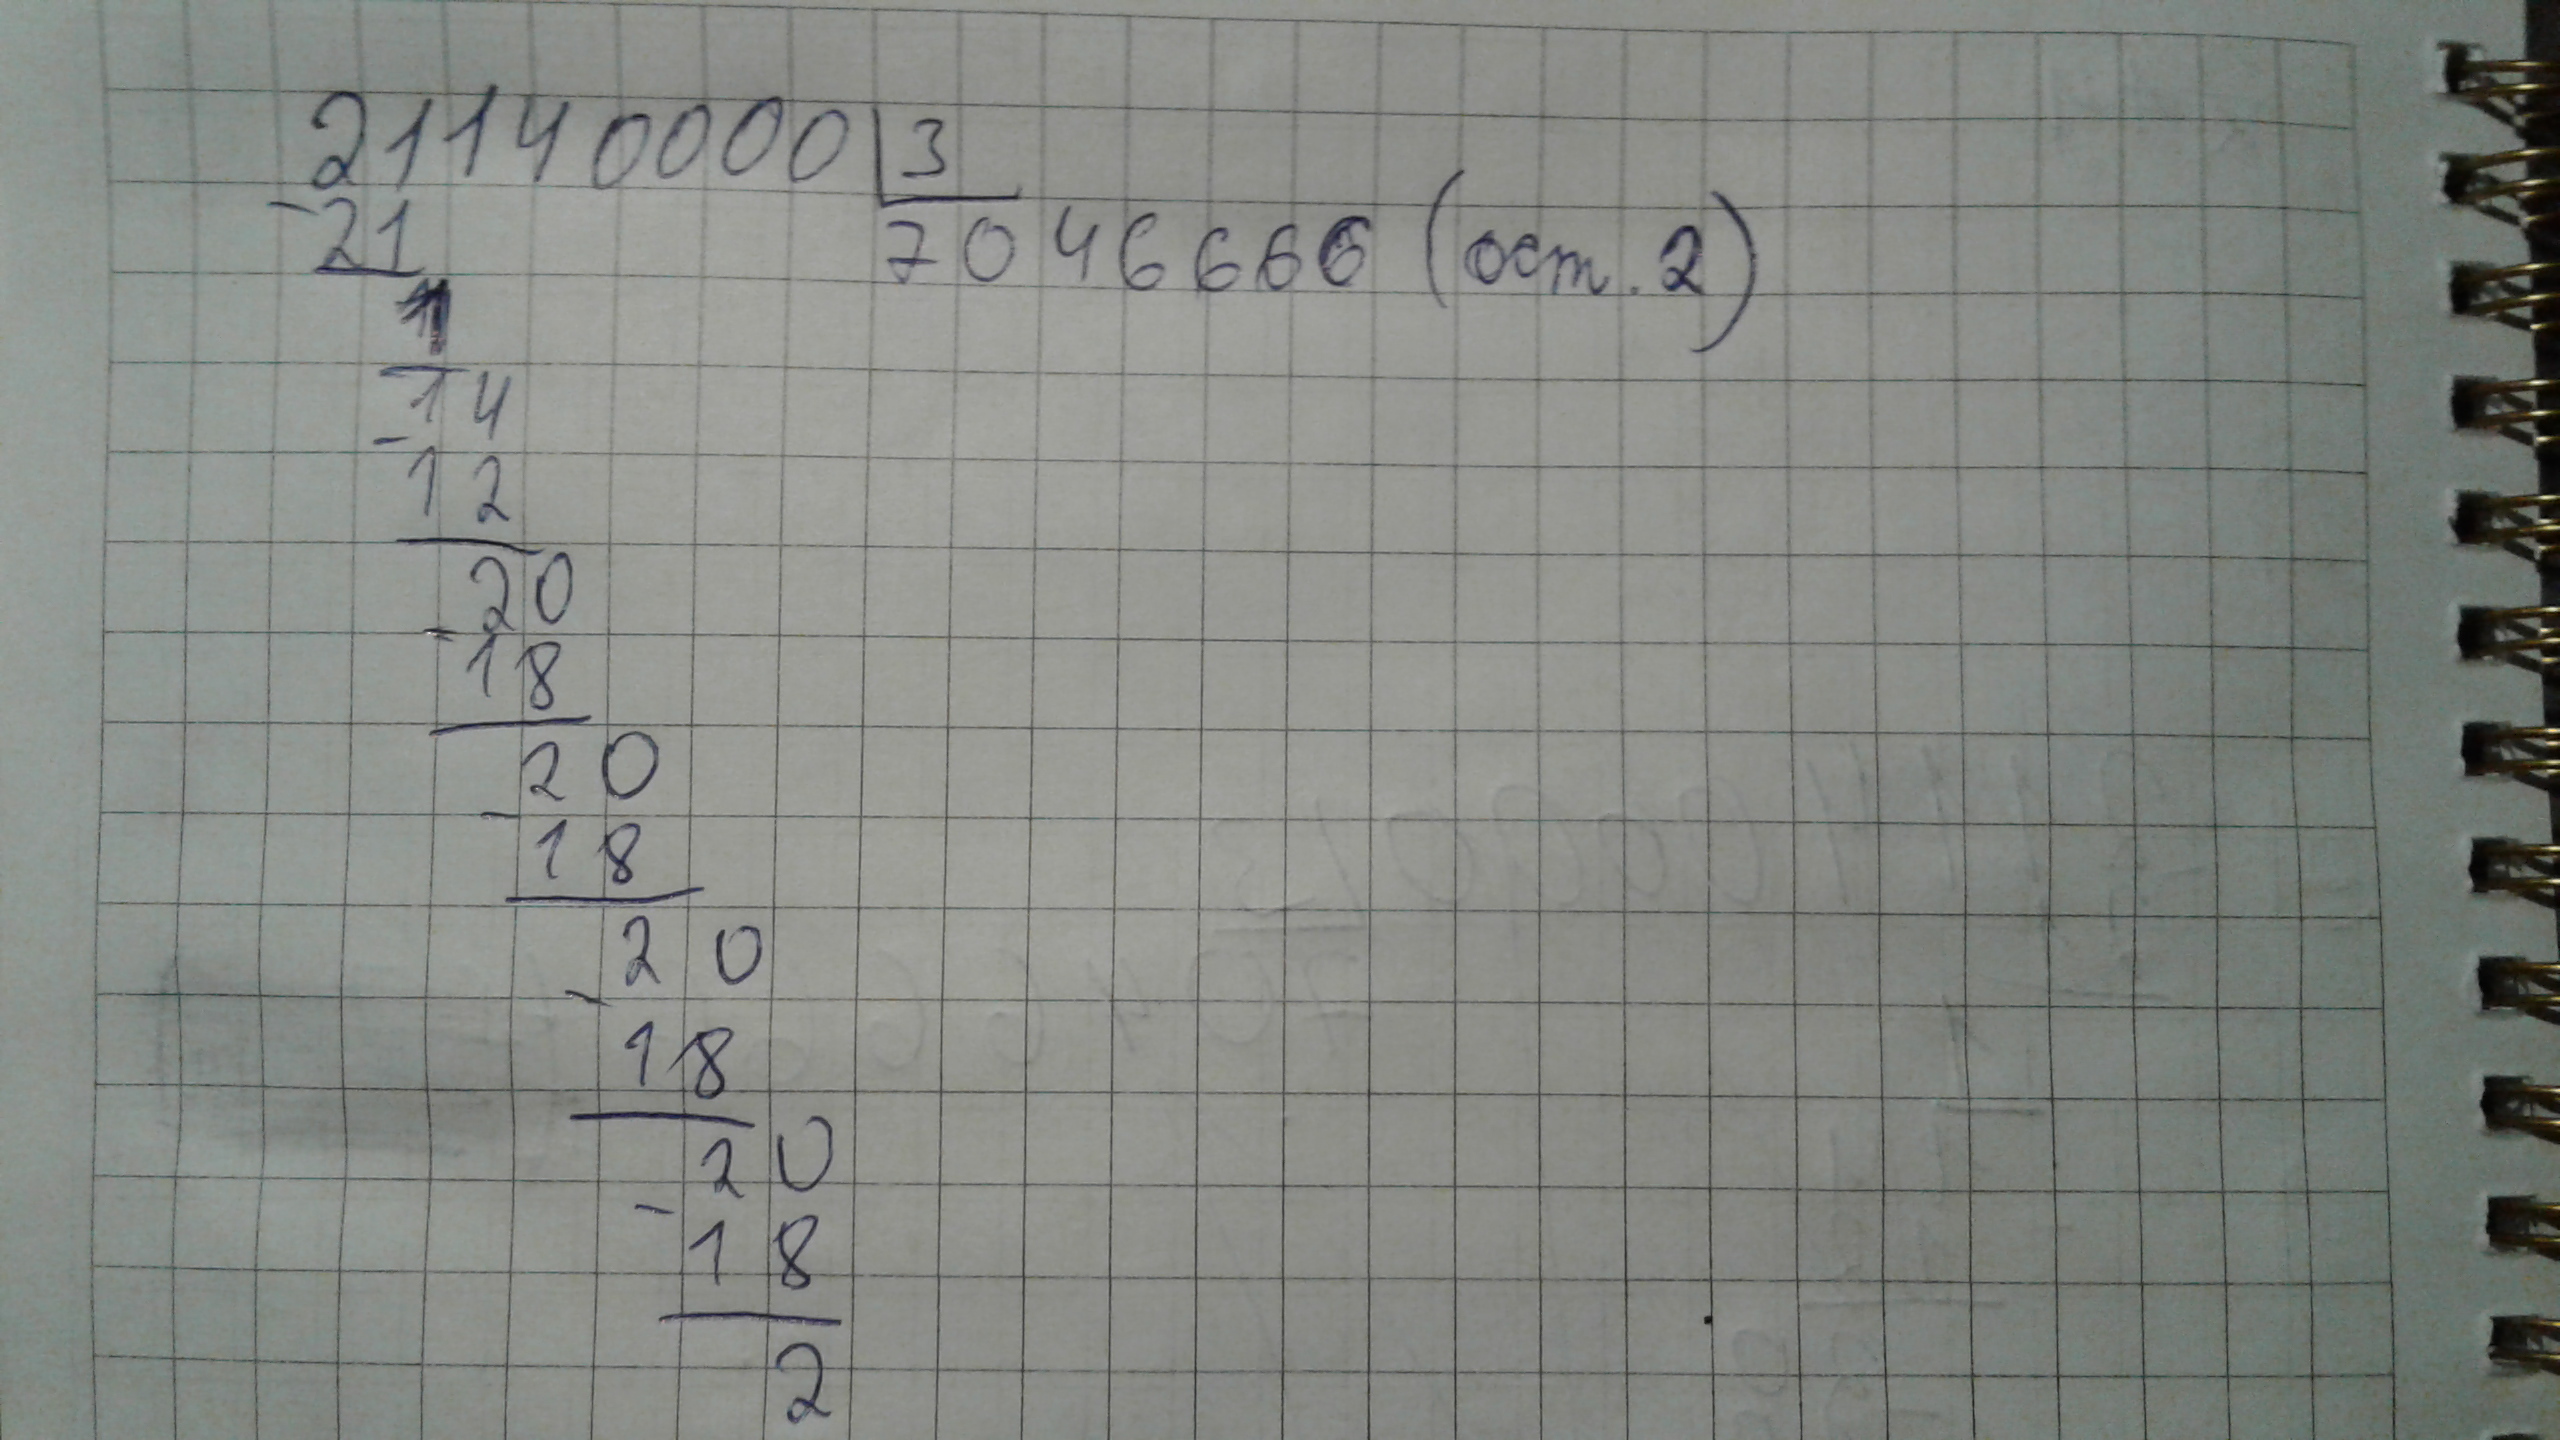 21140000 3
- 21 7046666 (ост. 2)
1
14
- 12
20
- 18
20
- 18
20
- 18
20
- 18
2